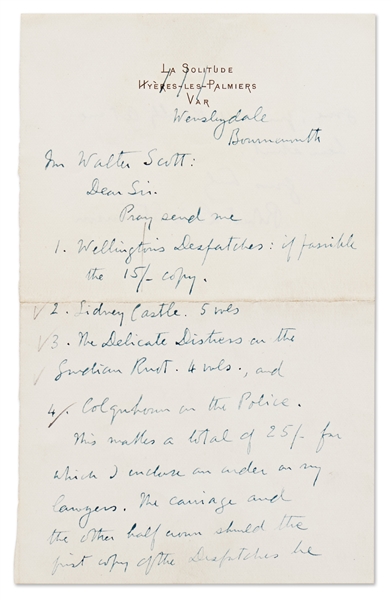 La Solitude
Hyères-les-Palmiers
Var
Wensleydale
Bournemouth
Mr Walter Scott:
Dear Sir.
Pray send me
1. Wellington's Despatches: if possible
the 15/- copy.
2. Sidney Castle. 5 vols
3. The Delicate Distress on the
Gordian Knot. 4 vols., and
4. Colquhoun on the Police.
This makes a total of 25/- for
which I inclose an order on my
lawyers. The carriage and
the other half crown should the
first copy of the Despatches be